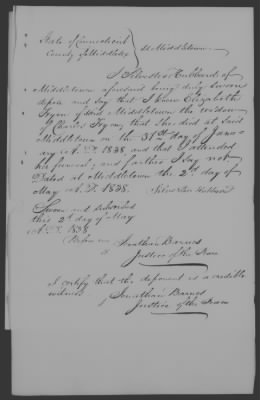 State of Connecticut
County of Middlesex
Middletown
I Hubbard of
Middletown aforesaid being duly sworn
depose and say that I knew Elizabeth
Tryon of said Middletown the widow
of Charles Tryon, that she died at said
Middletown on the 31st day of Janu
ary A.D. 1838, and that I attended
her funeral; and further I say not
Dated at Middletown the 2nd day of
May A.D. 1838. Hubbard
Sworn and subscribed
this 2d day of May
A.D. 1838
Before me Jonathan Barnes
Justice of the Peace
I certify that the deponent is a credible
witness Jonathan Barnes
Justice of the Peace